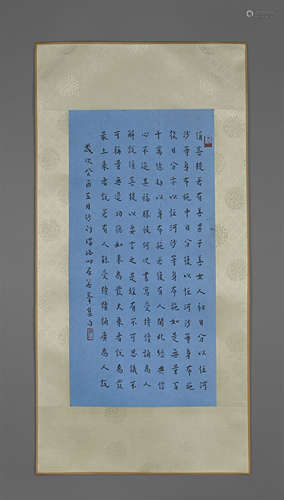 須菩提若有善男子善女人初日分以恆河
沙等身布施中日分復以恆河沙等身布施
後日分亦以恆河沙等身布施如是無量百
千萬億劫以身布施若復有人聞此經典信
心不逆其福勝彼何況書寫受持讀誦為人
解說須菩提以要言之是經有不可思議不
可稱量無邊功德如來為發大乘者說為發
最上乘者說若有人能受持讀誦廣為人說
歲次癸酉五月沙門